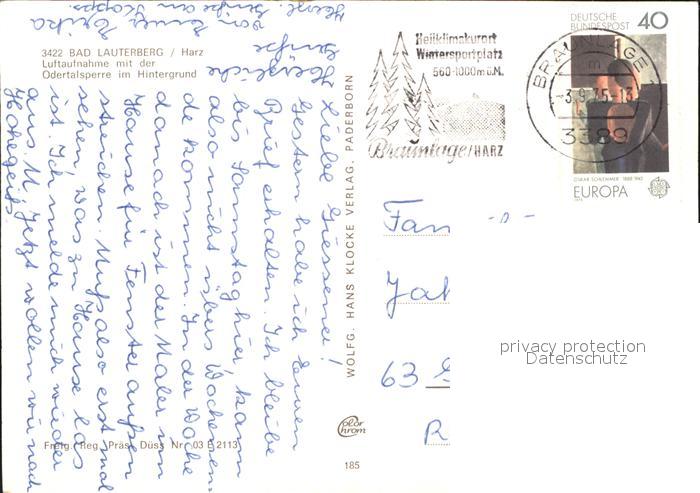 3422 BAD LAUTERBERG / Harz
Luftaufnahme mit der
Odertalsperre im Hintergrund
Liebe Giessener!
Gestern habe ich Euren
Brief erhalten. Ich bleibe
bis Samstag hier, kann
also nicht übers Wochenen-
de kommen. In der Woche
danach ist der Maler im
Hause für Fenster außen
streichen. Muß also erst mal
sehen, was zu Hause los
ist. Ich melde mich wieder
aus M. Jetzt wollen wir nach
Hohegeiß.
Herzliche
Grüße
von Eurer Erika
Grüße an
Freig. Reg. Präs. Düss Nr. 03 E 2113
WOLFG. HANS KLOCKE VERLAG, PADERBORN
color
chrom
185
Heilklimakurort
Wintersportplatz
560-1000m ü.M.
Braunlage/HARZ
BRAUNLAGE
m
-3.9.75-13
3389
DEUTSCHE
BUNDESPOST 40
OSKAR SCHLEMMER 1888-1943
EUROPA
1975
Fam
63
R
privacy protection
Datenschutz